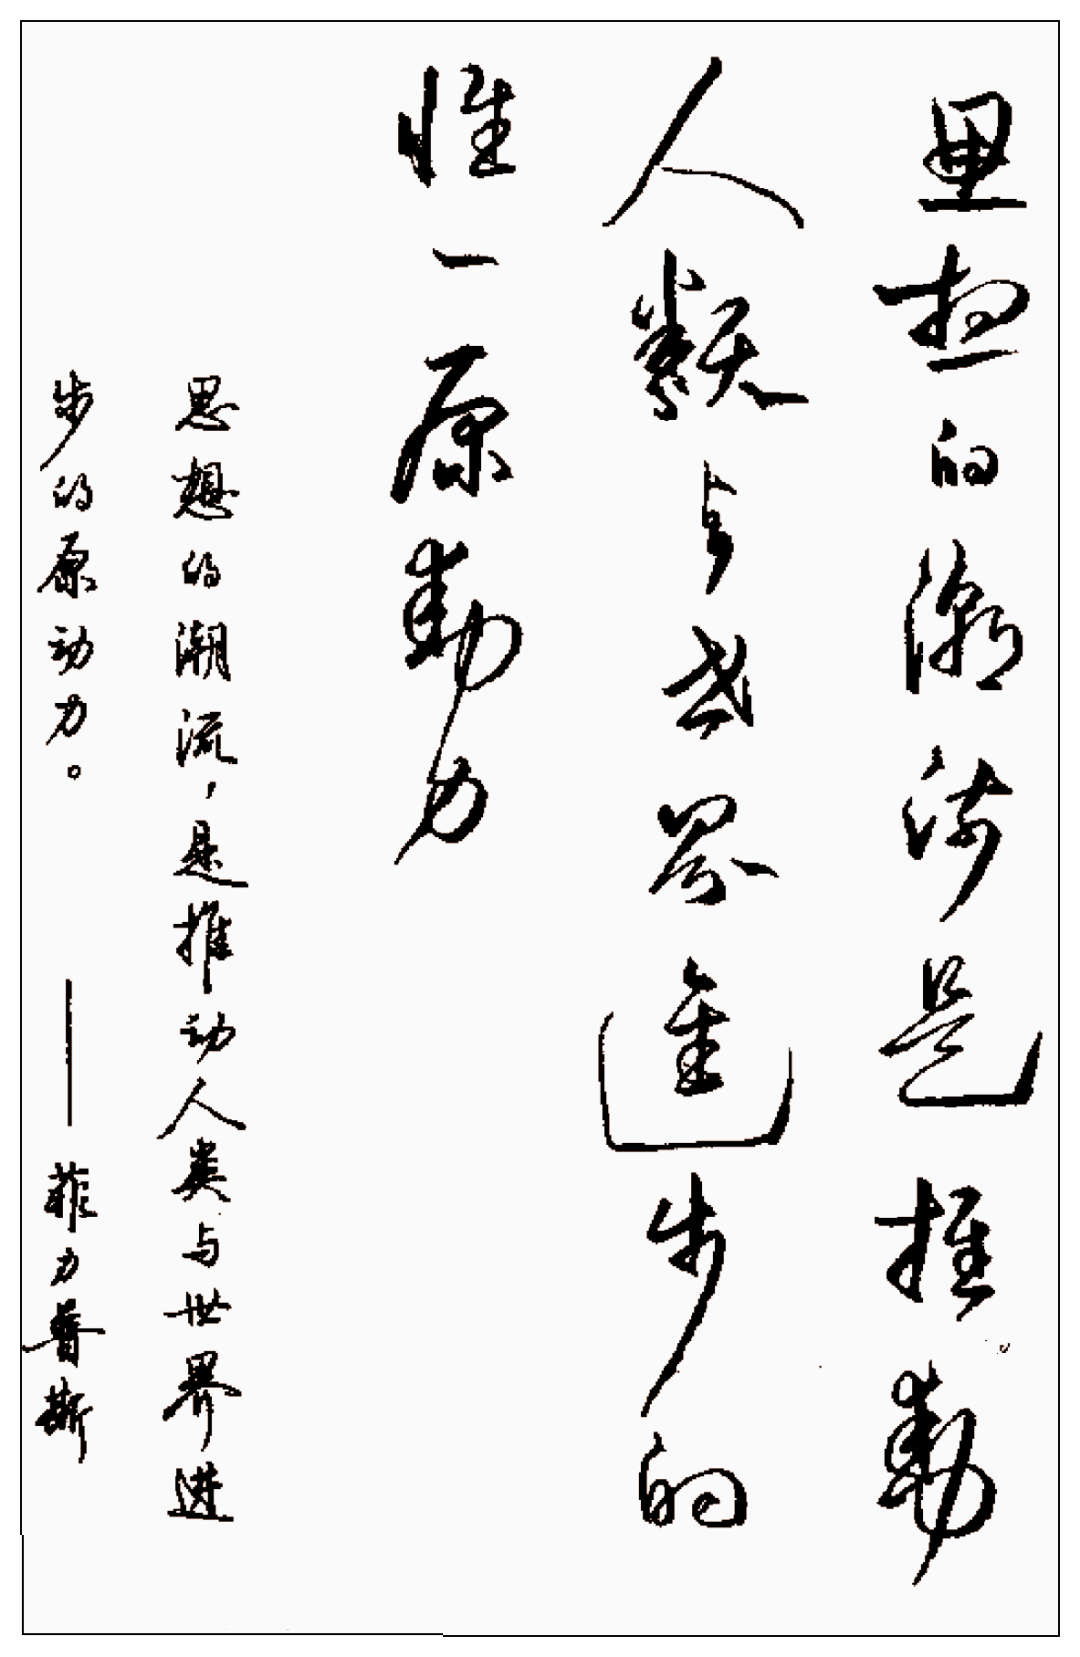 思想的潮流是推動
人類与世界進步的
惟一原動力
思想的潮流，是推动人类与世界进
步的原动力。——菲力普斯